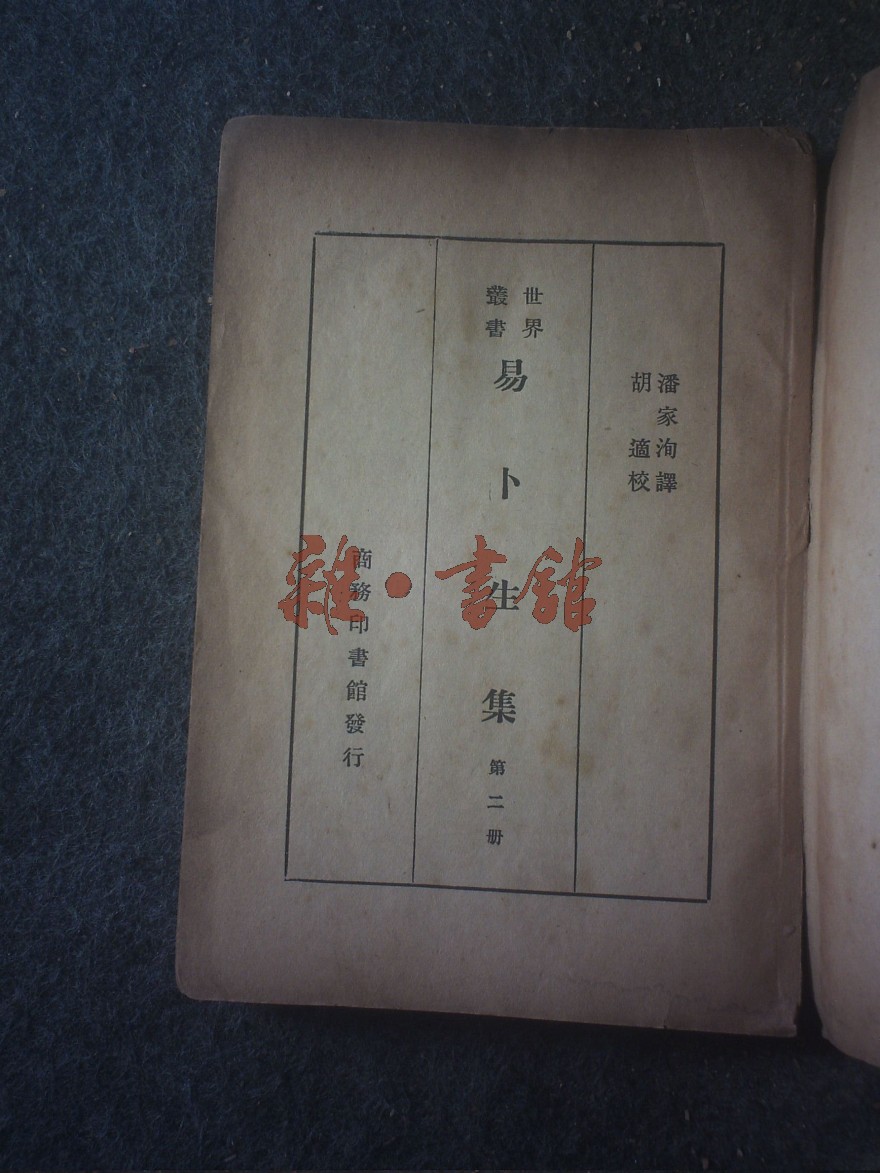 潘家洵譯
胡適校
世界
叢書
易卜生集
第二册
商務印書館發行
雜·書館